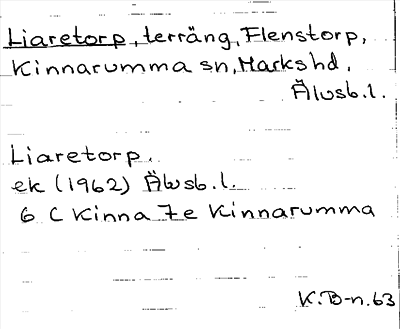 Liaretorp, terräng, Flenstorp,
Kinnarumma sn, Marks hd,
Älvsb.l.
Liaretorp.
ek (1962) Älvsb.l.
6 C Kinna 7e Kinnarumma
K.B-n. 63